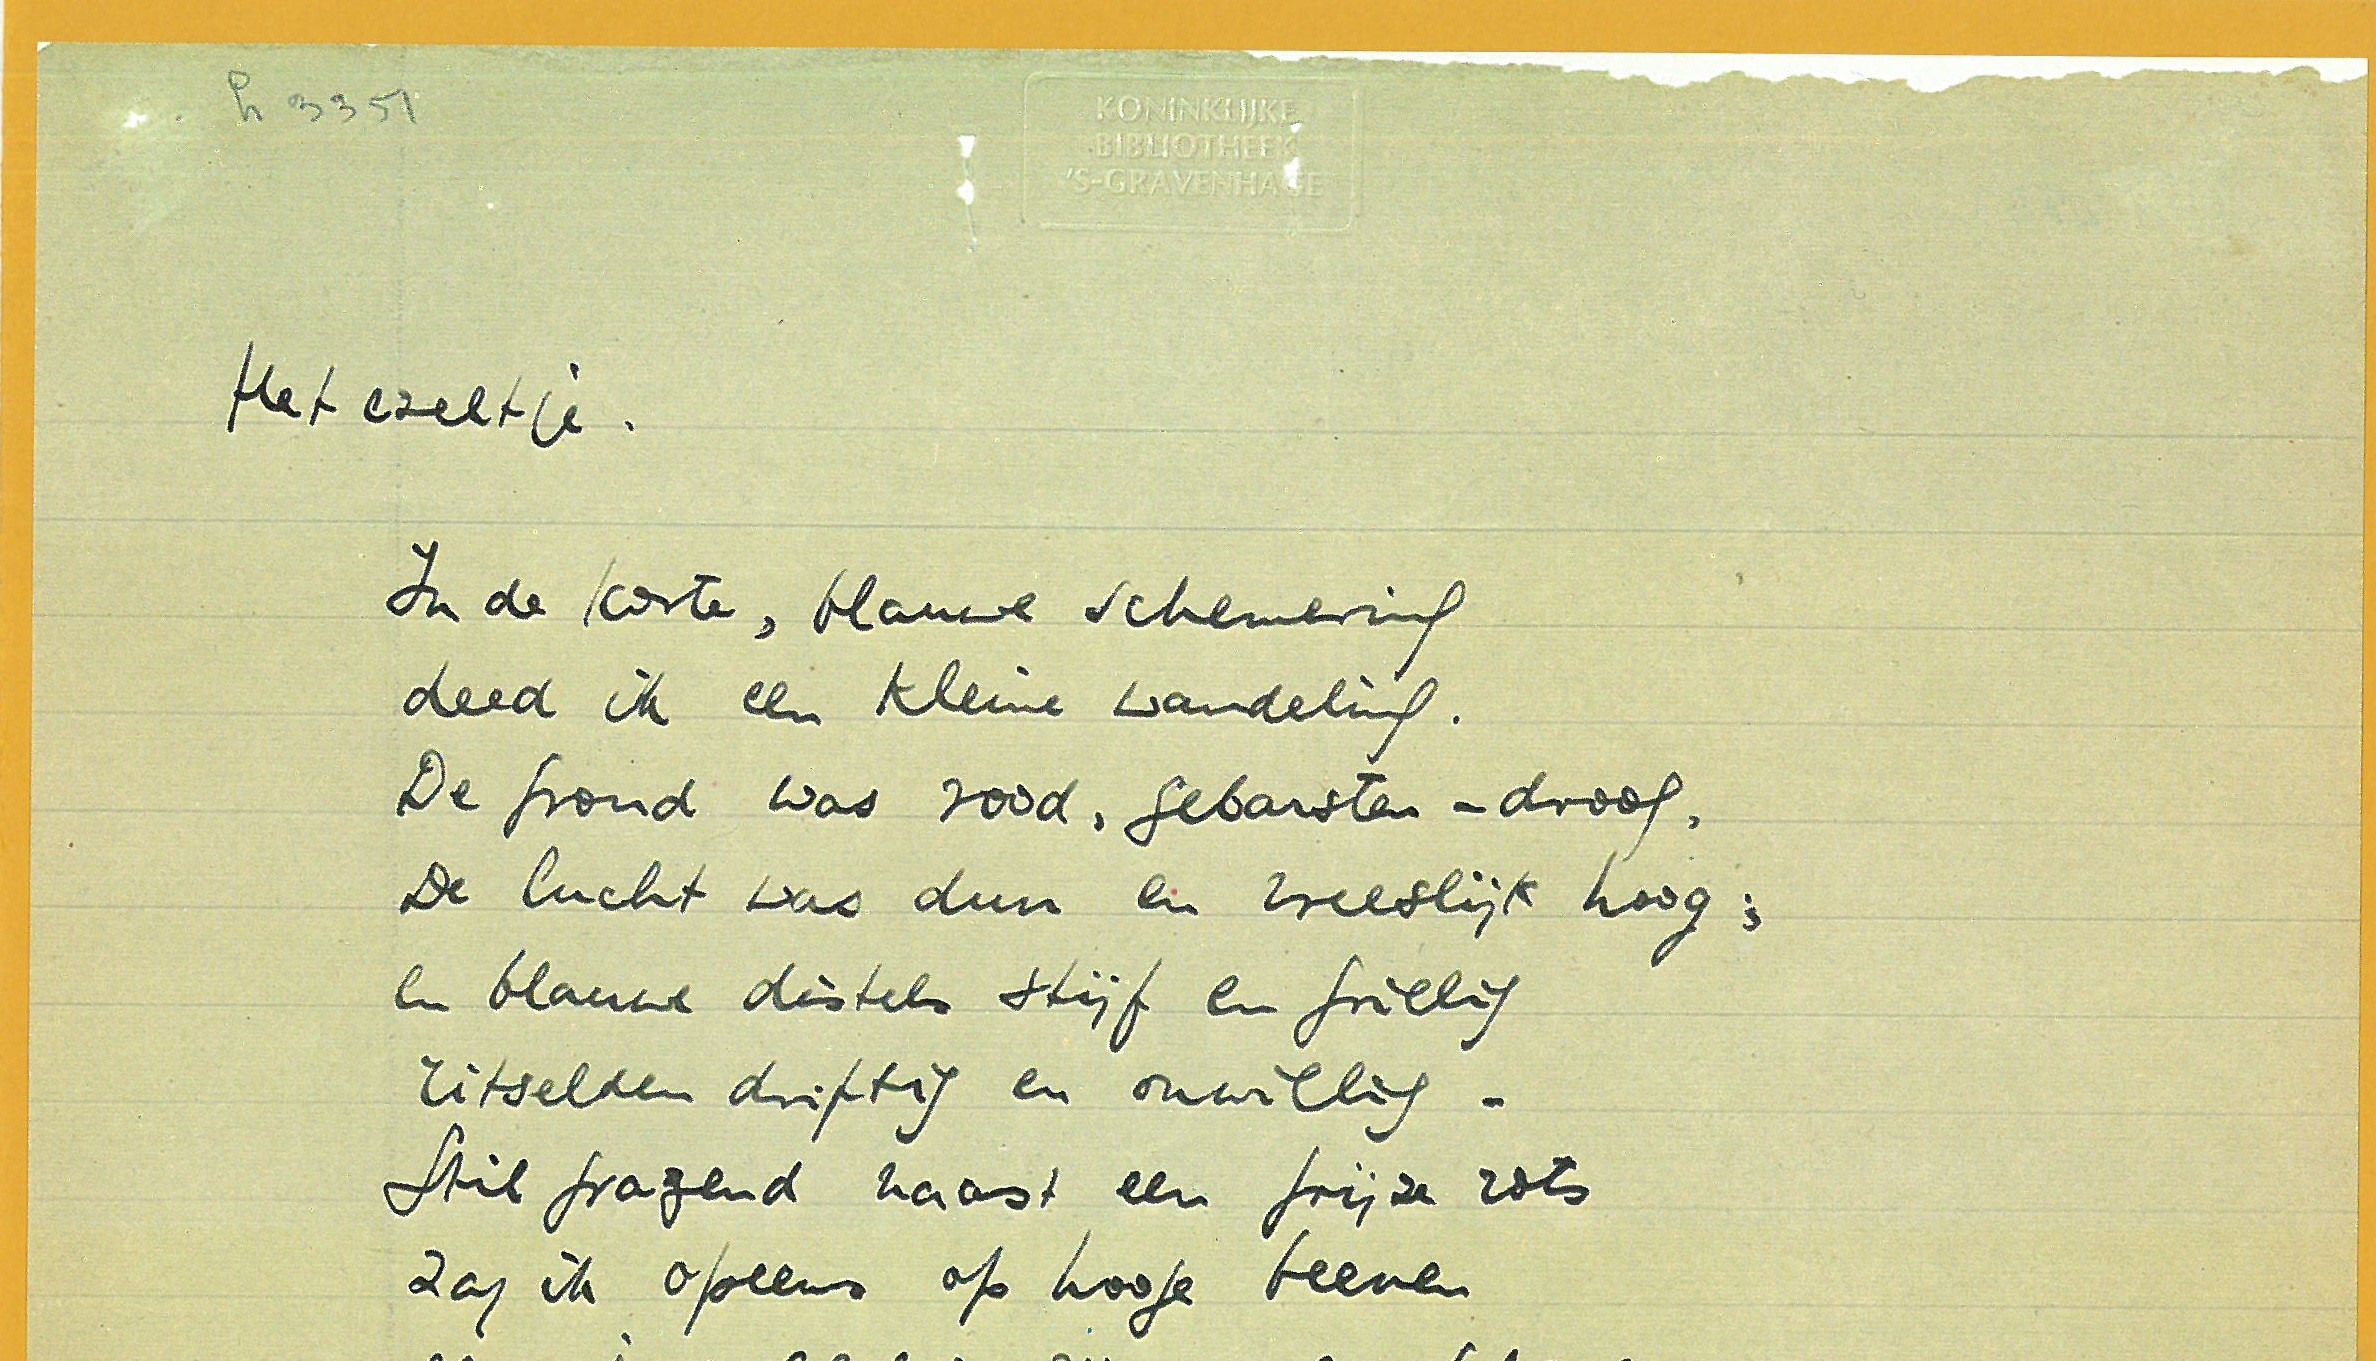 h 3351
KONINKLIJKE
BIBLIOTHEEK
'S-GRAVENHAGE
Het ezeltje.
In de korte, blauwe schemering
deed ik een kleine wandeling.
De grond was rood, gebarsten-droog,
De lucht was dun en vreeslijk hoog;
en blauwe distels stijf en grillig
ritselden driftig en onwillig -
Stil grazend naast een grijze rots
zag ik opeens op hooge beenen